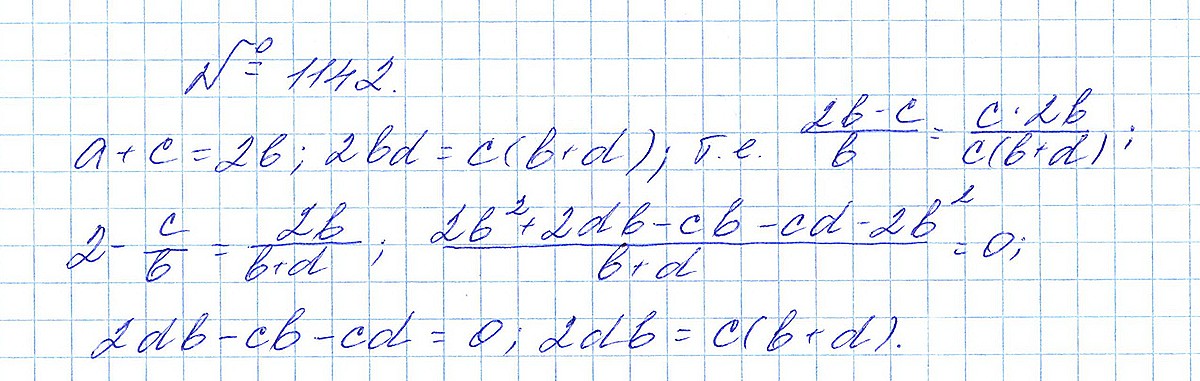 № 1142.
a + c = 2b; 2bd = c(b+d); т.е. (2b - c)/b = (c · 2b)/(c(b+d));
2 - c/b = 2b/(b+d); (2b² + 2db - cb - cd - 2b²)/(b+d) = 0;
2db - cb - cd = 0; 2db = c(b+d).